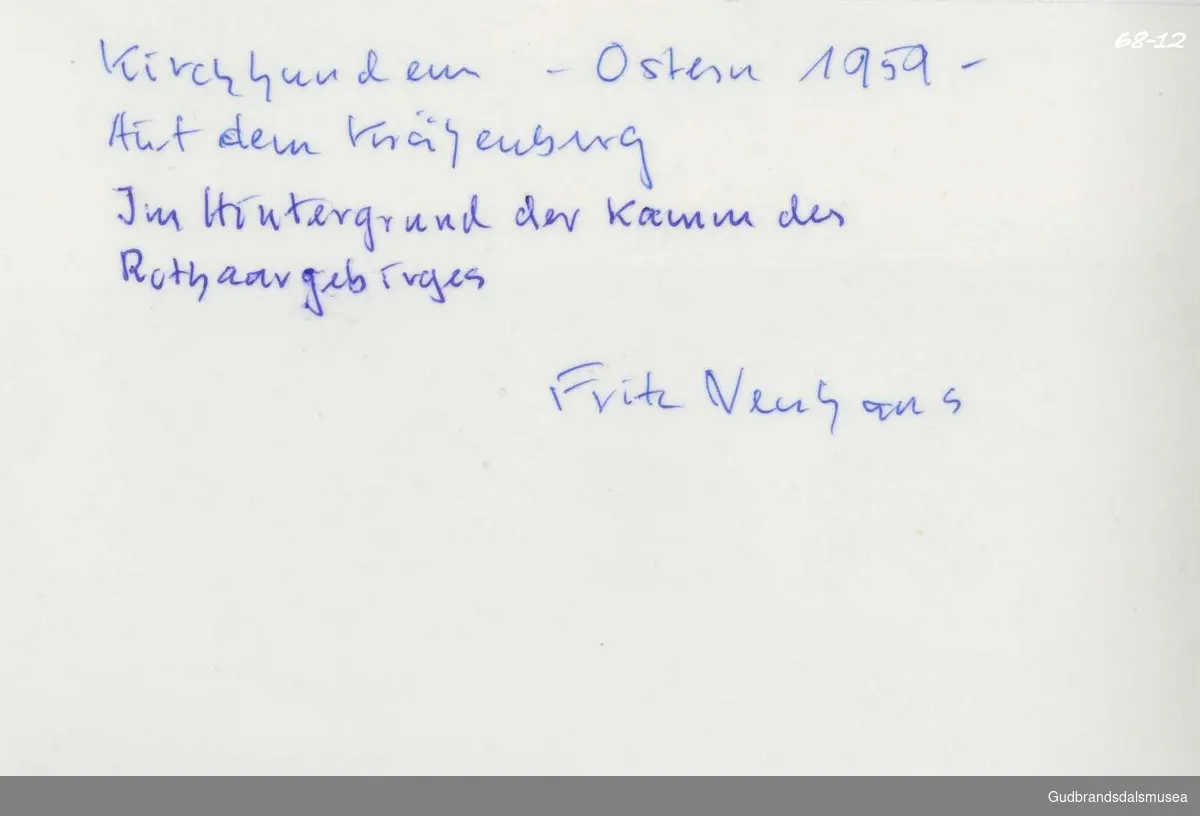 68-12
Kirchhundem - Ostern 1959 -
Auf dem Krähenburg
Im Hintergrund der Kamm des
Rothaargebirges
Fritz Neuhaus
Gudbrandsdalsmusea